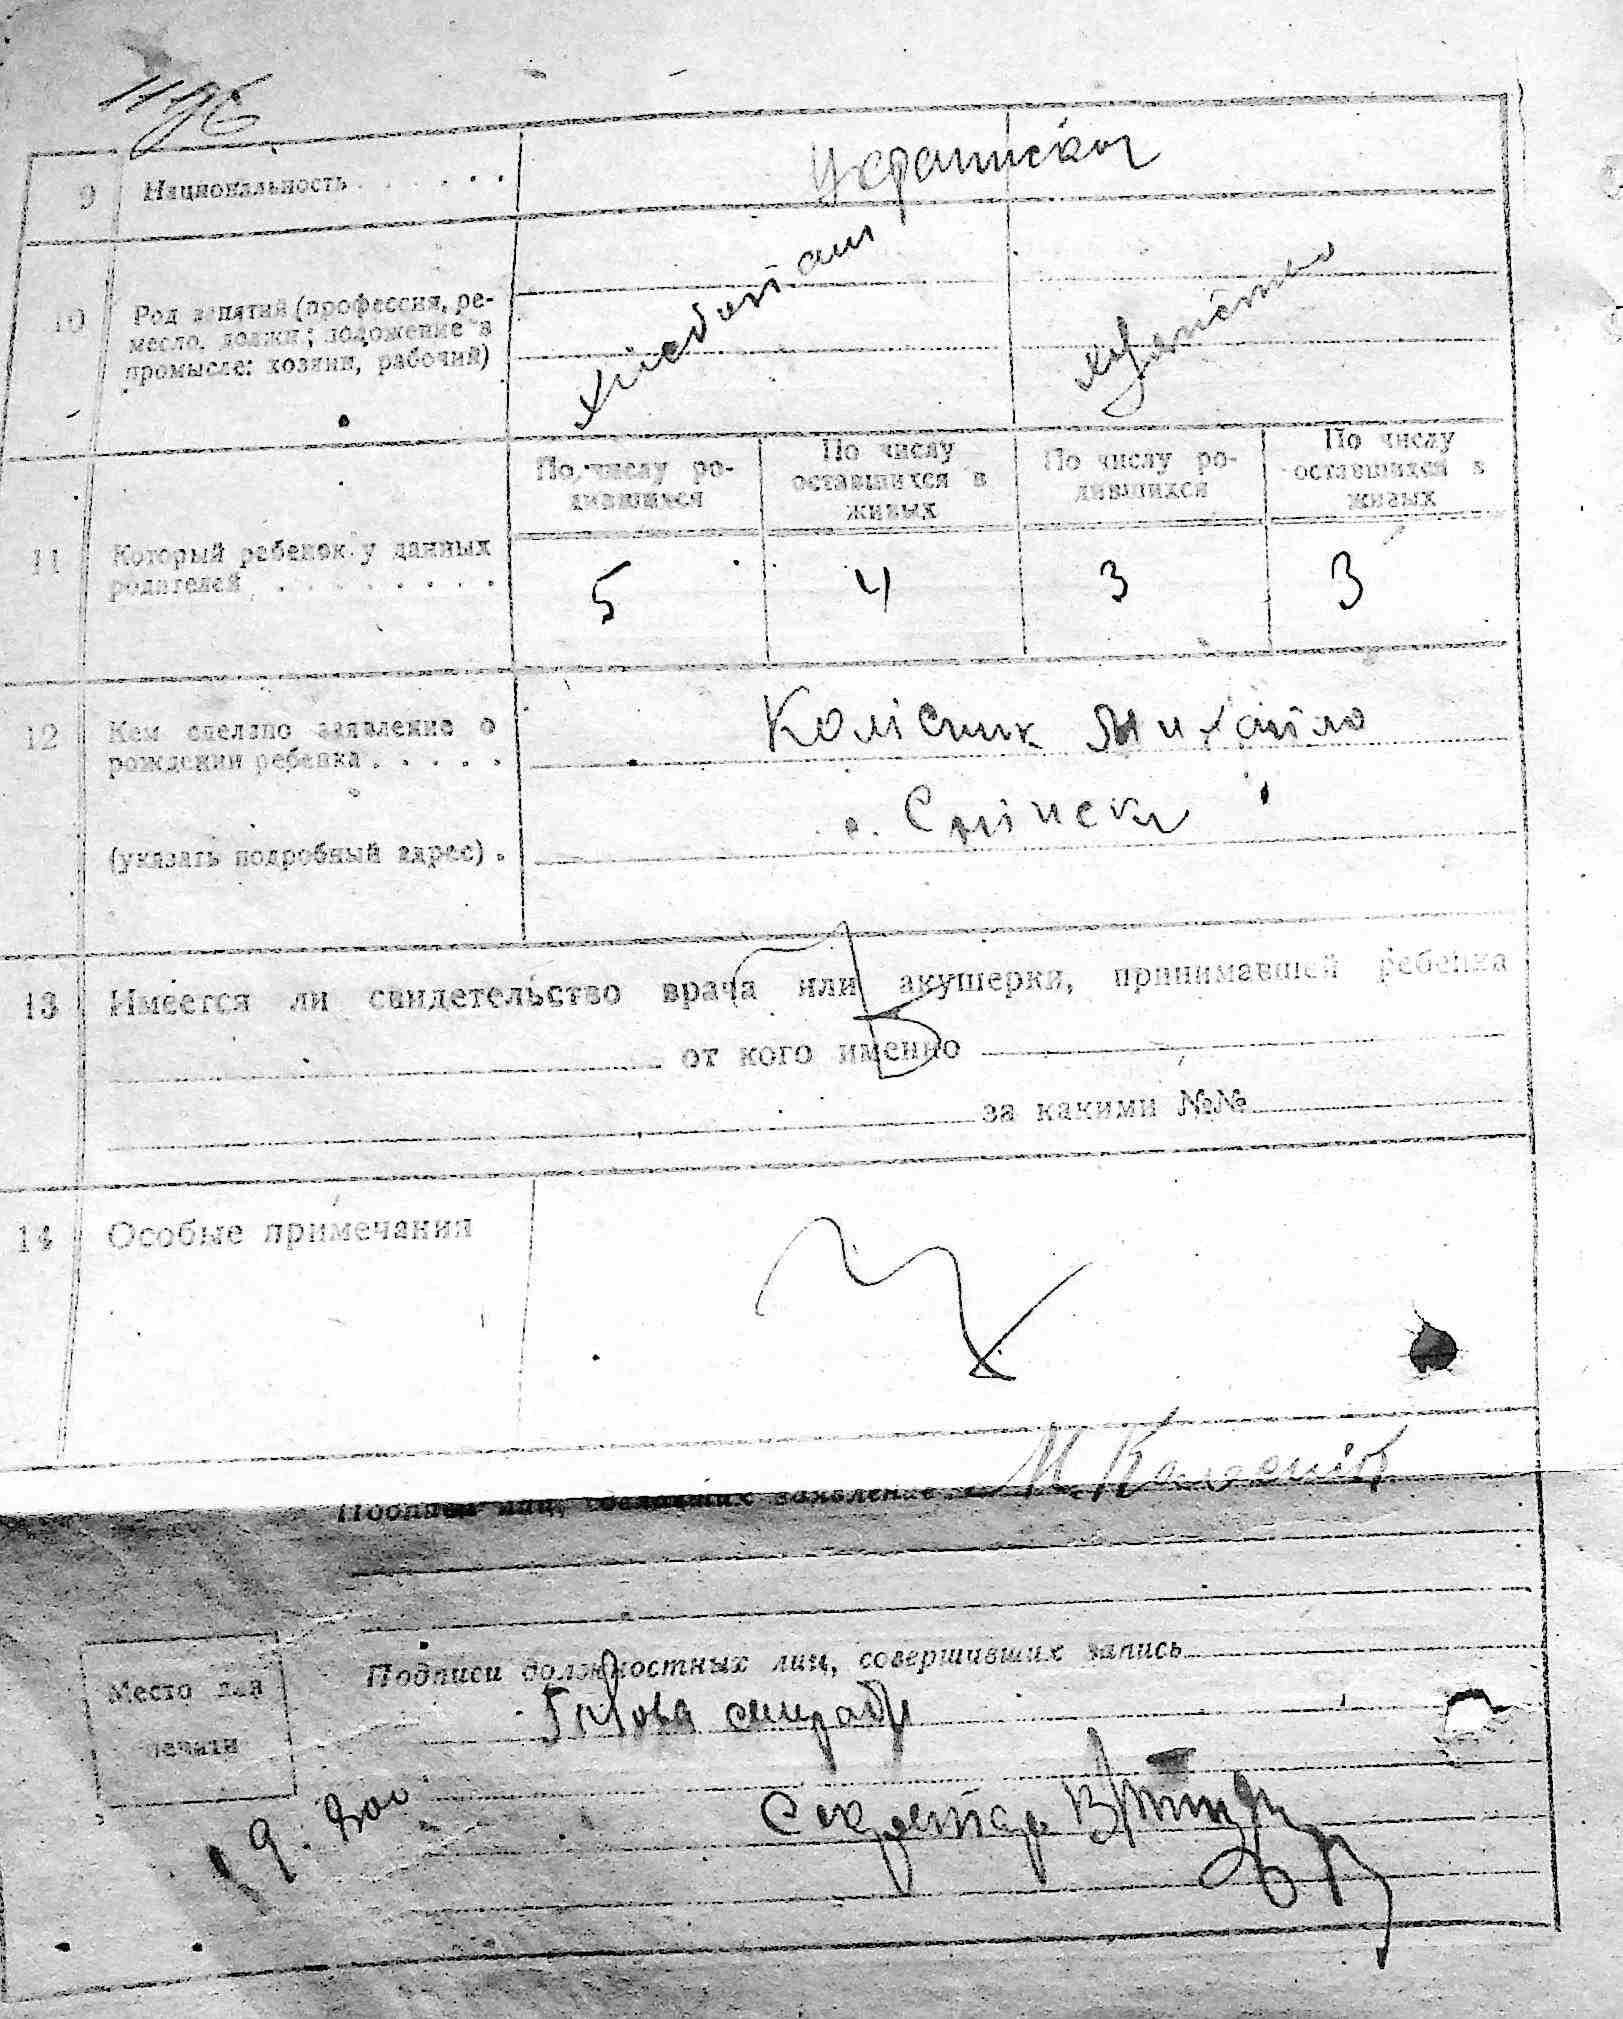 9 Национальность . . . . . .
Украински
10 Род занятий (профессия, ре-
месло, должн; положение в
промысле: хозяин, рабочий)
По числу ро-
дившихся
По числу
оставшихся в
живых
По числу ро-
дившихся
По числу
оставшихся в
живых
11 Который ребенок у данных
родителей . . . . . . . .
5 4 3 3
12 Кем сделано заявление о
рождении ребенка . . . . .
Колісник Михайло
(указать подробный адрес) .
с.
13 Имеется ли свидетельство врача или акушерки, принимавшей ребенка
от кого именно
за какими №№
14 Особые примечания
Подписи лиц, сделавших заявление М.
Подписи должностных лиц, совершивших запись
Место для
печати
Голова сільради
Секретар